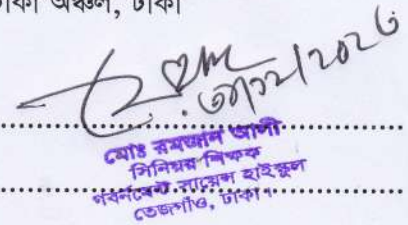 ঢাকা অঞ্চল, ঢাকা
মোঃ রমজান আলী
সিনিয়র শিক্ষক
গবর্নমেন্ট সায়েন্স হাইস্কুল
তেজগাঁও, ঢাকা।